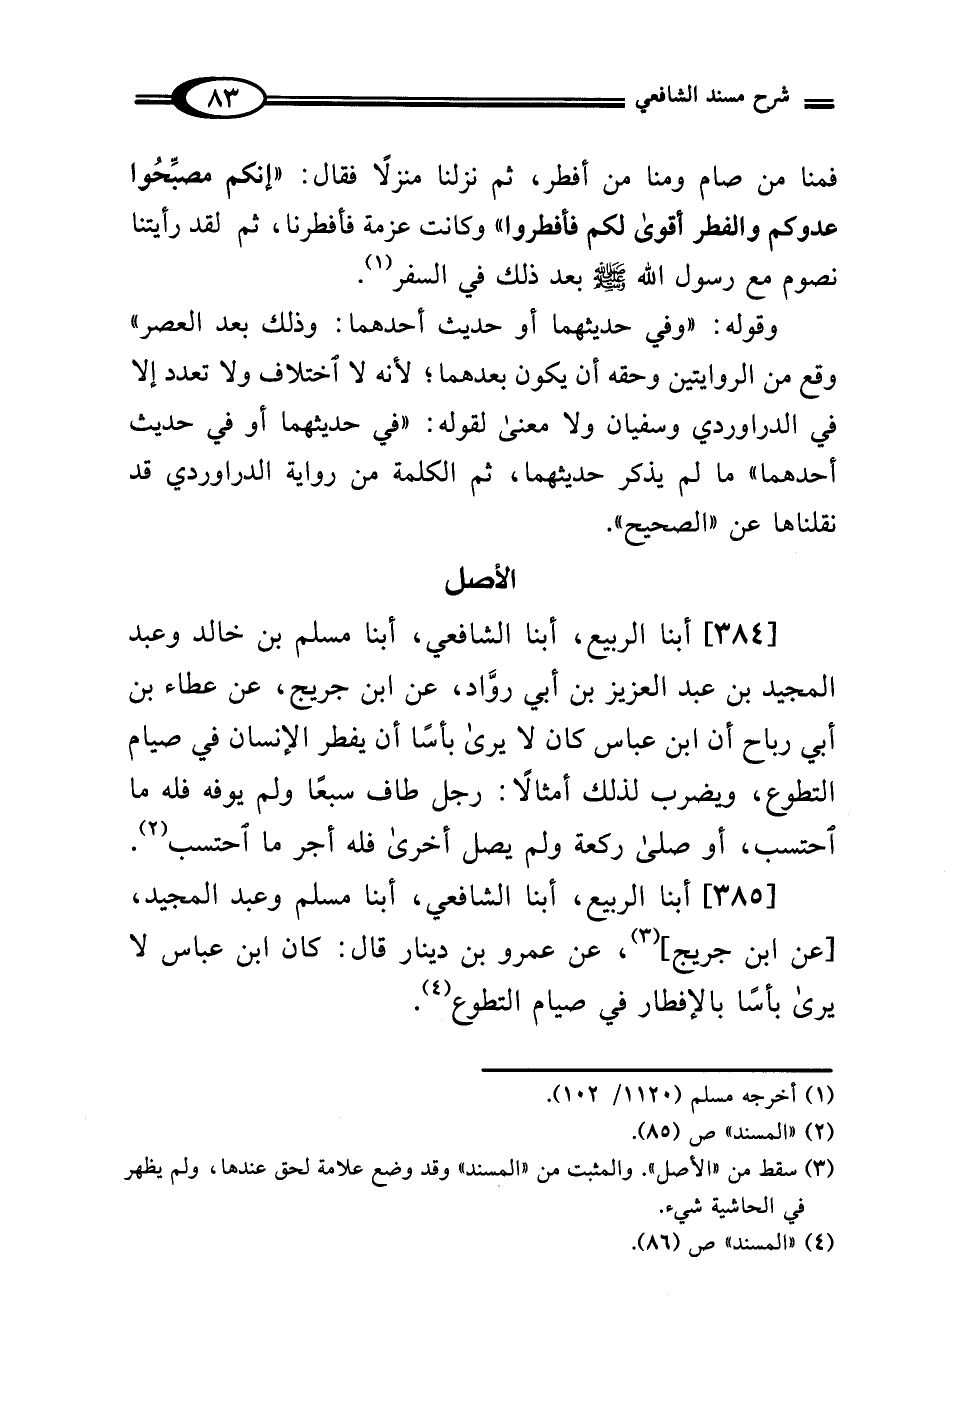 شرح مسند الشافعي ٨٣
فمنا من صام ومنا من أفطر، ثم نزلنا منزلًا فقال: «إنكم مصبِّحُوا
عدوكم والفطر أقوىٰ لكم فأفطروا» وكانت عزمة فأفطرنا، ثم لقد رأيتنا
نصوم مع رسول الله ﷺ بعد ذلك في السفر(١).
وقوله: «وفي حديثهما أو حديث أحدهما: وذلك بعد العصر»
وقع من الروايتين وحقه أن يكون بعدهما؛ لأنه لا ٱختلاف ولا تعدد إلا
في الدراوردي وسفيان ولا معنىٰ لقوله: «في حديثهما أو في حديث
أحدهما» ما لم يذكر حديثهما، ثم الكلمة من رواية الدراوردي قد
نقلناها عن «الصحيح».
الأصل
[٣٨٤] أبنا الربيع، أبنا الشافعي، أبنا مسلم بن خالد وعبد
المجيد بن عبد العزيز بن أبي روَّاد، عن ابن جريج، عن عطاء بن
أبي رباح أن ابن عباس كان لا يرىٰ بأسًا أن يفطر الإنسان في صيام
التطوع، ويضرب لذلك أمثالًا: رجل طاف سبعًا ولم يوفه فله ما
ٱحتسب، أو صلىٰ ركعة ولم يصل أخرىٰ فله أجر ما ٱحتسب(٢).
[٣٨٥] أبنا الربيع، أبنا الشافعي، أبنا مسلم وعبد المجيد،
[عن ابن جريج](٣)، عن عمرو بن دينار قال: كان ابن عباس لا
يرىٰ بأسًا بالإفطار في صيام التطوع(٤).
(١) أخرجه مسلم (١١٢٠/ ١٠٢).
(٢) «المسند» ص (٨٥).
(٣) سقط من «الأصل». والمثبت من «المسند» وقد وضع علامة لحق عندها، ولم يظهر
في الحاشية شيء.
(٤) «المسند» ص (٨٦).